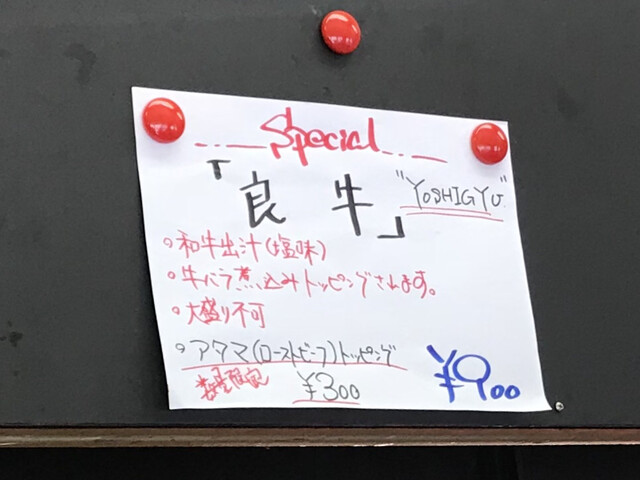 Special
「良牛」 "YOSHIGYU"
・和牛出汁(塩味)
・牛バラ煮込みトッピングされます。
・大盛り不可
・アタマ(ローストビーフ)トッピング
数量限定 ¥300
¥900